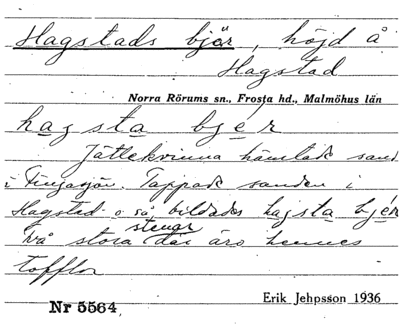 Hagstads bjär, höjd å
Hagstad
Norra Rörums sn., Frosta hd., Malmöhus län
hagsta bjér
Jättekvinna hämtade sand
i Finjasjön. Tappade sanden i
Hagstad o så bildades hagsta bjér
Två stora stenar där äro hennes
tofflor
Nr 5564. Erik Jehpsson 1936